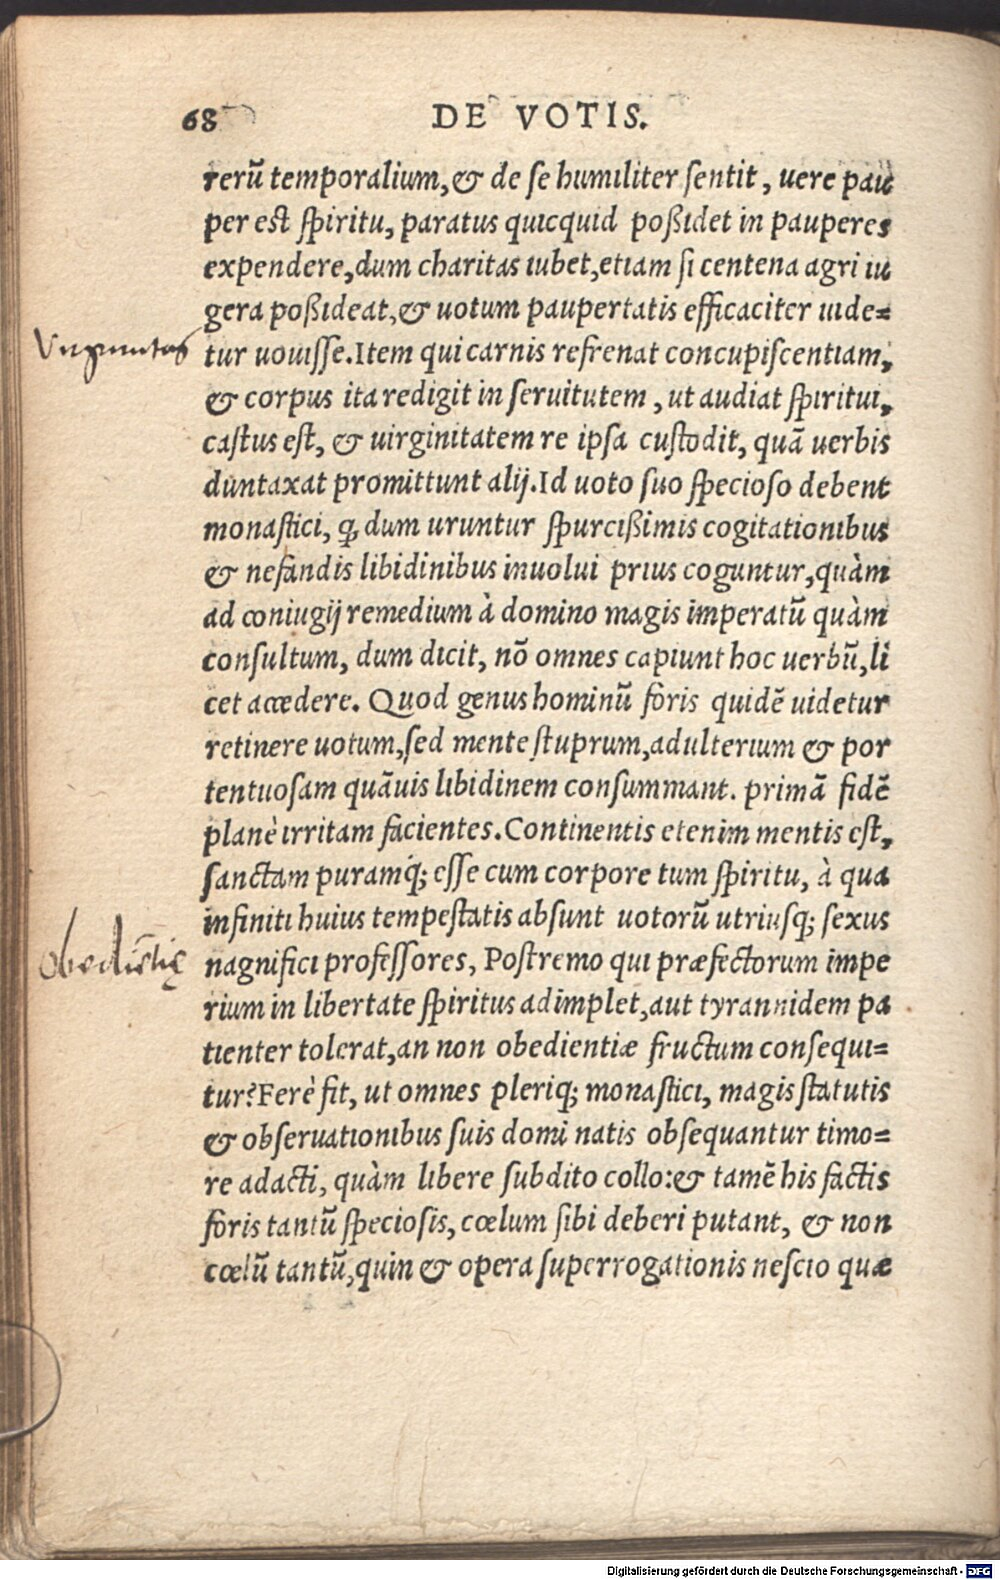 68 DE VOTIS.
rerũ temporalium, & de se humiliter sentit, uere pau
per est spiritu, paratus quicquid poßidet in pauperes
expendere, dum charitas iubet, etiam si centena agri iu
gera poßideat, & uotum paupertatis efficaciter uide=
Virginitas
tur uouisse. Item qui carnis refrenat concupiscentiam,
& corpus ita redigit in seruitutem, ut audiat spiritui,
castus est, & uirginitatem re ipsa custodit, quã uerbis
duntaxat promittunt alij. Id uoto suo specioso debent
monastici, q, dum uruntur spurcißimis cogitationibus
& nefandis libidinibus inuolui prius coguntur, quàm
ad coniugij remedium à domino magis imperatũ quàm
consultum, dum dicit, nõ omnes capiunt hoc uerbũ, li
cet accedere. Quod genus hominũ foris quidẽ uidetur
retinere uotum, sed mente stuprum, adulterium & por
tentuosam quãuis libidinem consummant. primã fidẽ
planè irritam facientes. Continentis etenim mentis est,
sanctam puramq́; esse cum corpore tum spiritu, à qua
infiniti huius tempestatis absunt uotorũ utriusq; sexus
Obediẽtię
nagnifici professores, Postremo qui præfectorum impe
rium in libertate spiritus adimplet, aut tyrannidem pa
tienter tolerat, an non obedientiæ fructum consequi=
tur? Ferè fit, ut omnes pleriq; monastici, magis statutis
& obseruationibus suis domi natis obsequantur timo=
re adacti, quàm libere subdito collo: & tamẽ his factis
foris tantũ speciosis, cœlum sibi deberi putant, & non
cœlũ tantũ, quin & opera superrogationis nescio quæ
Digitalisierung gefördert durch die Deutsche Forschungsgemeinschaft - DFG